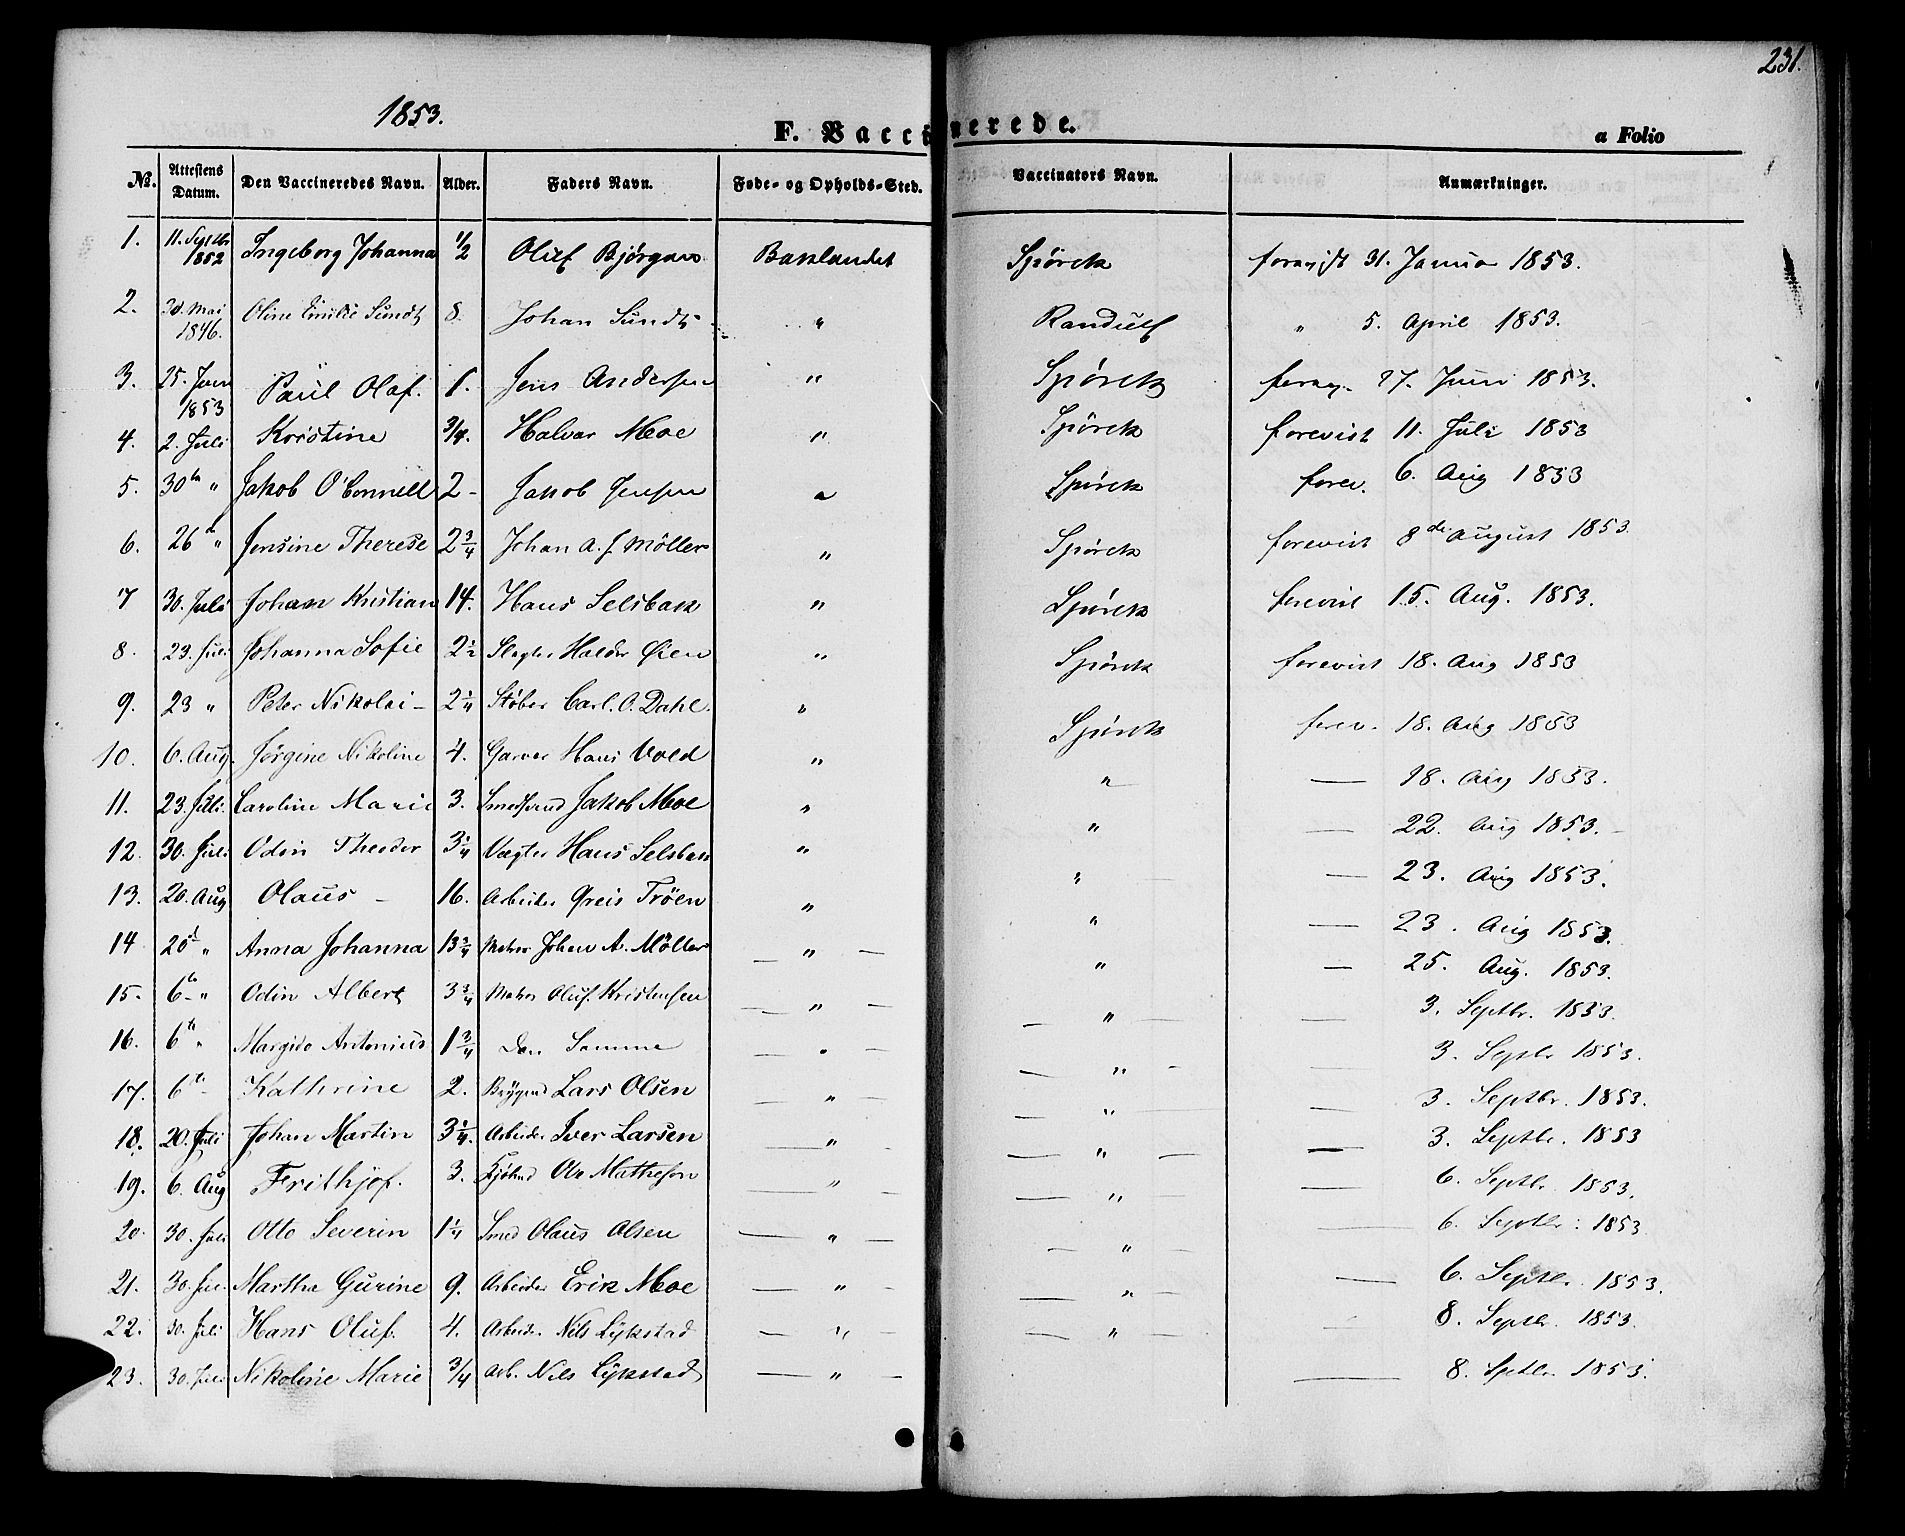 231.
1853.
F. Vaccinerede.
a Folio
No. Attestens Datum. Den Vaccineredes Navn. Alder. Faders Navn. Føde- og Opholds-Sted. Vaccinators Navn. Anmærkninger.
1. 11. Septbr 1852 Ingeborg Johanna 1/2 Oluf Bjørgum Baklandet Spörck forevist 31. Januar 1853.
2. 30. Mai 1846. Oline Emilie Sundt 8. Johan Sundt " Randulf " 5. April 1853.
3. 25. Juni 1853 Paul Olaf. 1. Jens Andersen " Spörck forev. 27. Juni 1853.
4. 2. Juli Kristine 3/4. Halvar Moe " Spörck forevist 11. Juli 1853
5. 30te " Jakob O'Connell 2 - Jakob Jensen " Spörck forev. 6. Aug 1853
6. 26d " Jensine Therese 2 3/4 Johan A. J. Möller " Spörck forevist 8de August 1853.
7 30. Juli Johan Kristian 14. Hans Selsbak " Spörck forevist 15. Aug. 1853.
8. 23. Juli Johanna Sofie 2 1/2 Slagter Haldor Øien " Spörck forevist 18. Aug 1853
9. 23 " Peter Nikolai - 2 1/4 Støber Carl. O. Dahl. " Spörck forev. 18. Aug 1853
10. 6. Aug. Jørgine Nikoline 4. Garver Hans Vold " " — 18. Aug 1853.
11. 23. Juli. Caroline Marie 3. Smedsvend Jakob Moe " " — 22. Aug 1853. -
12. 30. Juli Odin Theodor 3 1/4 Vægter Hans Selsbak " " — 23. Aug 1853.
13. 20. Aug Olaus - 16. Arbeider Greis Tröen " " — 23. Aug 1853.
14 20d " Anna Johanna 13 3/4 Matros Johan A. Möller — " — " — 25. Aug. 1853.
15. 6te " Odin Albert 3 3/4 Matros Oluf Kristensen — " — — " — — 3. Septbr. 1853.
16. 6te " Margido Antonius 1 3/4 Den Samme — " — — " — — 3. Septbr 1853.
17. 6te - Kathrine 2. Lars Olsen — " — — " — — 3. Septbr. 1853.
18. 20. Juli Johan Martin 3 1/4. Arbeider Iver Larsen — " — — " — — 3. Septbr. 1853
19. 6. Aug Frithjof. 3. Ole Mathesen — " — " — 6. Septbr. 1853.
20. 30. Juli Otto Severin 1 1/4 Smed Olaus Olsen — " — — " — — 6. Septbr. 1853.
21. 30. Juli Martha Gurine 9. Arbeider Erik Moe — " — — " — — 6. Septbr. 1853.
22. 30. Juli Hans Oluf. 4. Arbeider Nils Lykstad — " — — " — — 8. Septbr. 1853.
23. 30. Juli Nikoline Marie 3/4 Arb. Nils Lykstad — " — — 8. Septbr. 1853.